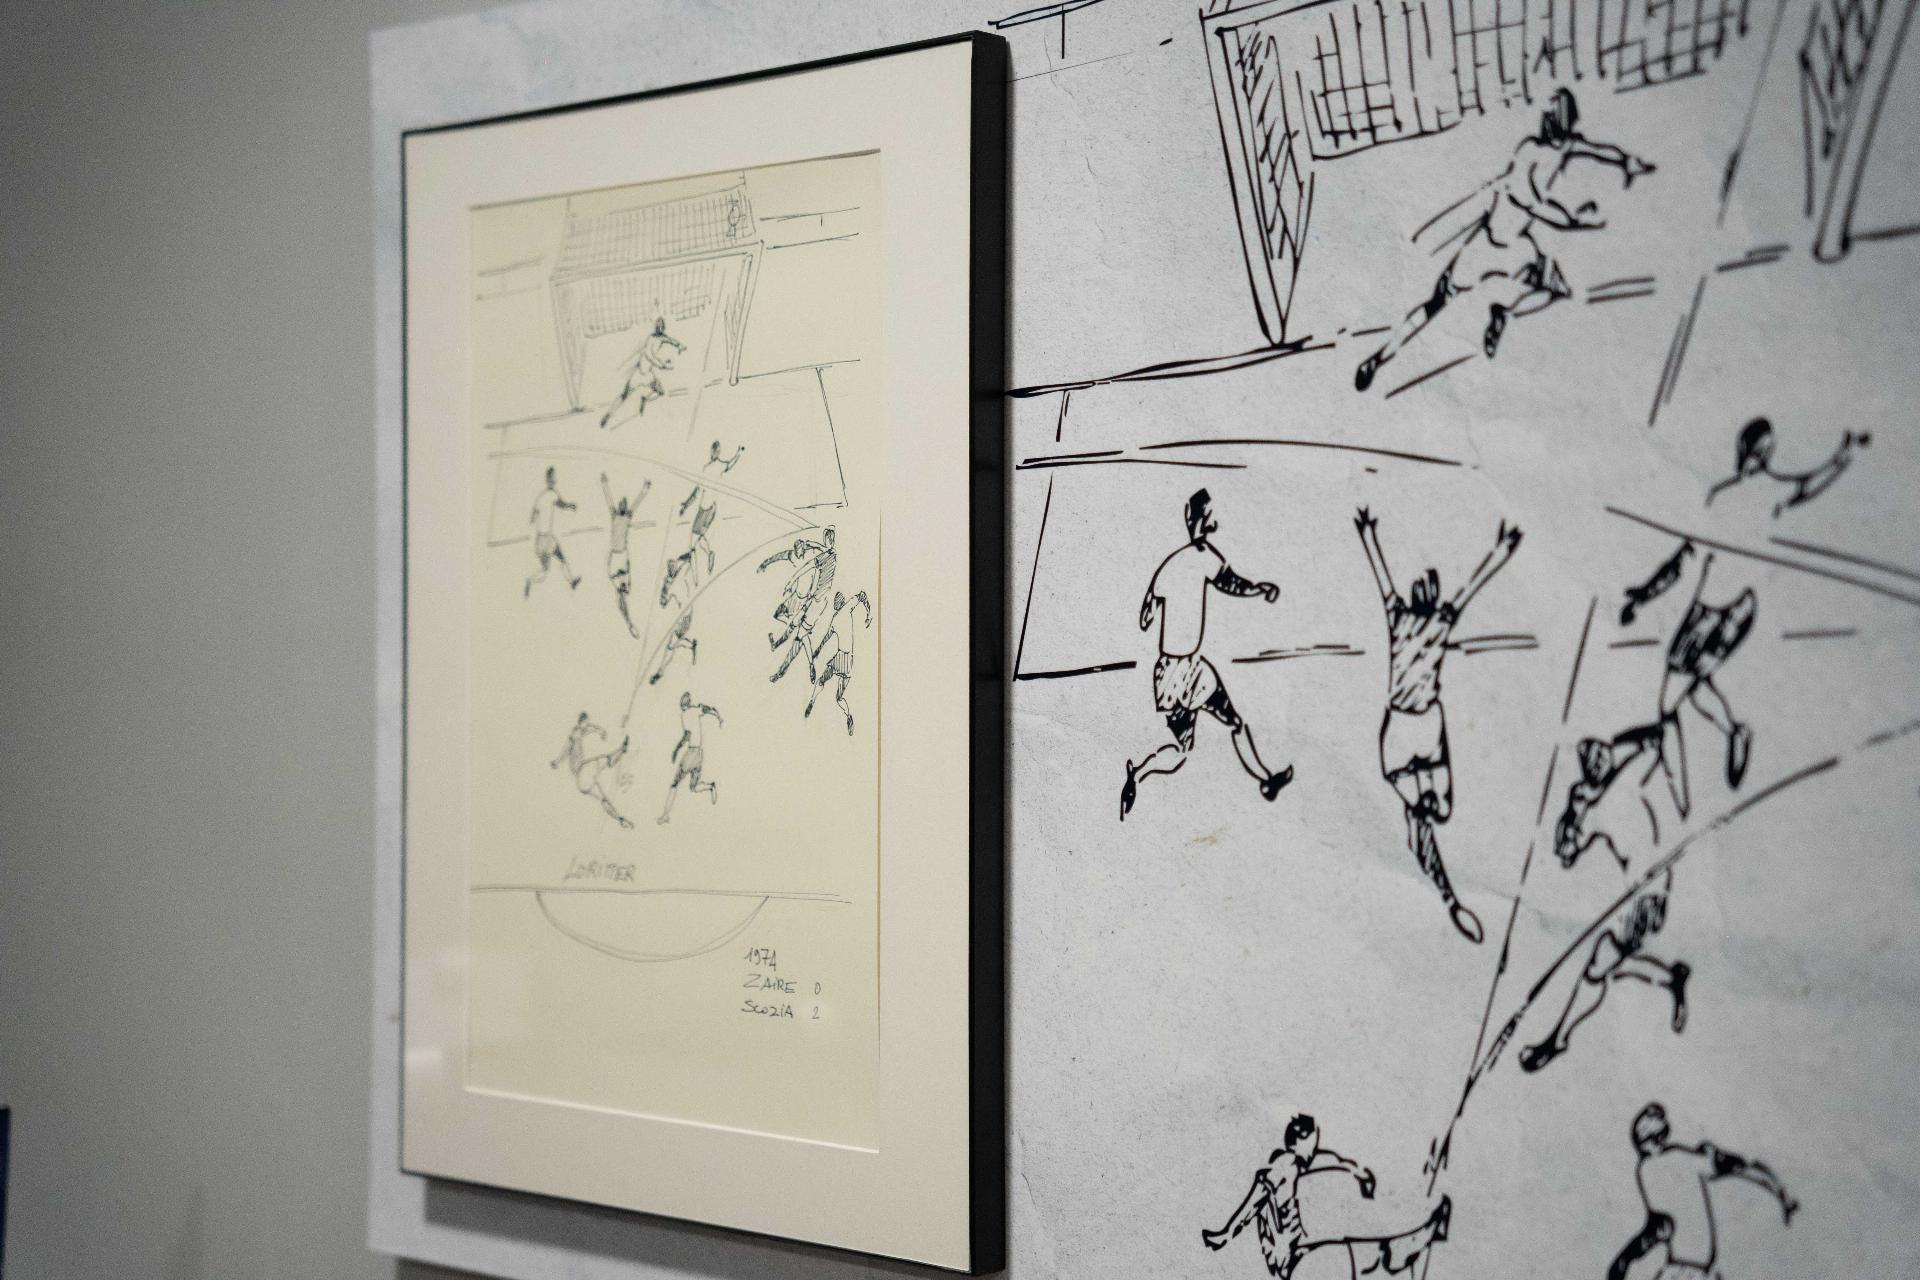 LORIMER
1974
ZAIRE 0
SCOZIA 2